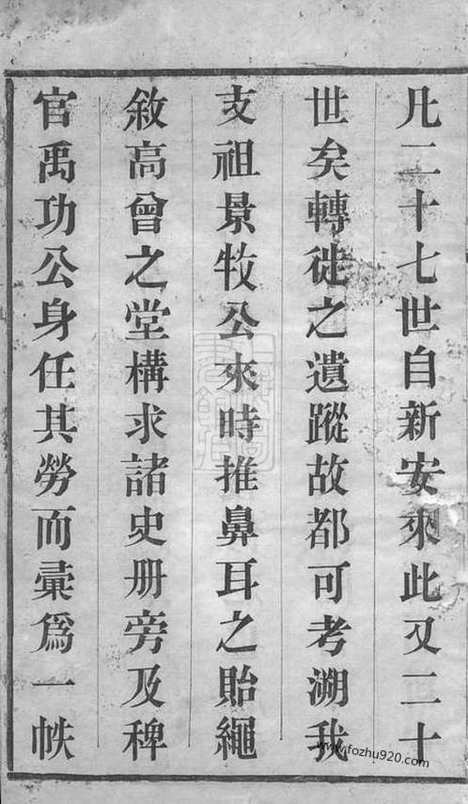 凡二十七世自新安來此又二十
世矣轉徙之遺蹤故都可考溯我
支祖景牧公來時推鼻耳之貽繩
敘高曾之堂構求諸史册旁及稗
官禹功公身任其勞而彙爲一帙
www.fozhu920.com